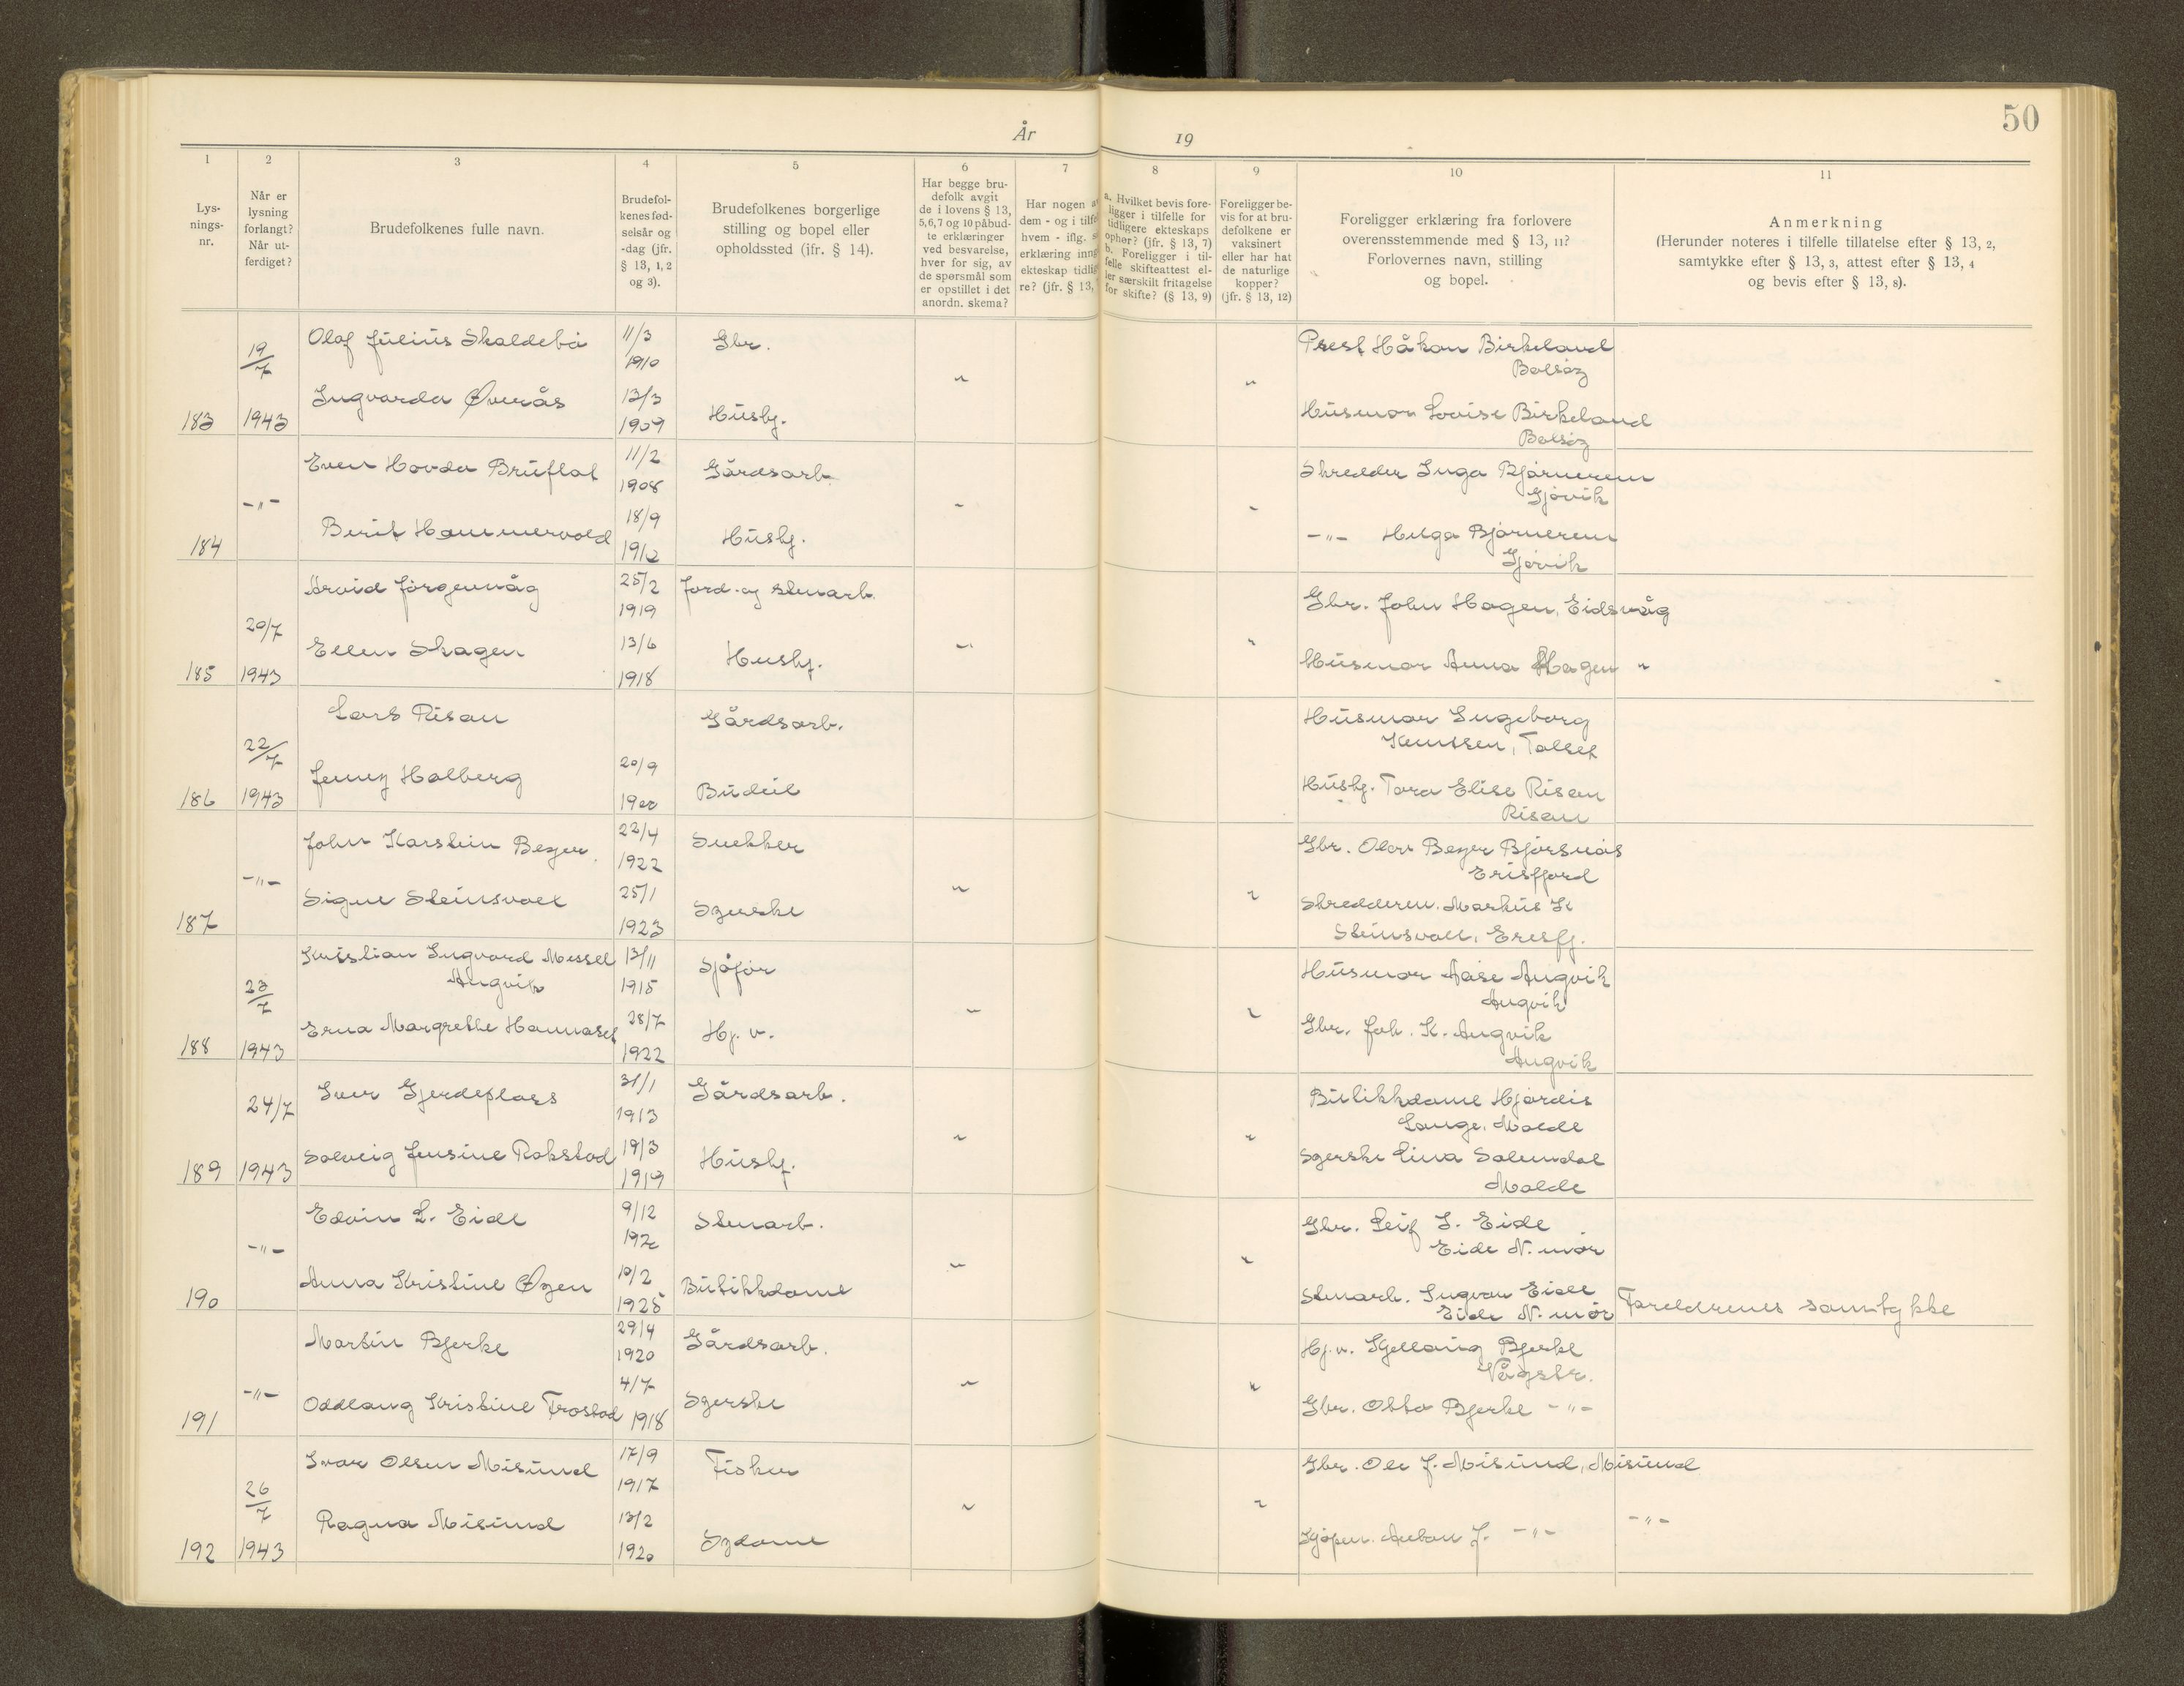 50
År 19
1 2 3 4 5 6 7 8 9 10 11
Lys-
nings-
nr.
Når er
lysning
forlangt?
Når ut-
ferdiget?
Brudefolkenes fulle navn.
Brudefol-
kenes fød-
selsår og
-dag (jfr.
§ 13, 1, 2
og 3).
Brudefolkenes borgerlige
stilling og bopel eller
opholdssted (jfr. § 14).
Har begge bru-
defolk avgit
de i lovens § 13,
5,6,7 og 10 påbud-
te erklæringer
ved besvarelse,
hver for sig, av
de spørsmål som
er opstillet i det
anordn. skema?
Har nogen a
dem - og i tilfe
hvem - iflg. s
erklæring inng
ekteskap tidlig
re? (jfr. § 13,
a. Hvilket bevis fore-
ligger i tilfelle for
tidligere ekteskaps
ophør? (jfr. § 13, 7)
b. Foreligger i til-
felle skifteattest el-
ler særskilt fritagelse
for skifte? (§ 13, 9)
Foreligger be-
vis for at bru-
defolkene er
vaksinert
eller har hat
de naturlige
kopper?
(jfr. § 13, 12)
Foreligger erklæring fra forlovere
overensstemmende med § 13, 11?
Forlovernes navn, stilling
og bopel.
Anmerkning
(Herunder noteres i tilfelle tillatelse efter § 13, 2,
samtykke efter § 13, 3, attest efter § 13, 4
og bevis efter § 13, 8).
19/7 Olaf Julius Skaldebø 11/3 Gbr. Prest Håkon Birkeland
1910 Bolsøy
Ingvarda Øverås 13/3 Husmor Lovise Birkeland
183 1943 1909 Hushj. Bolsøy
Even Hovda Bruflat 11/2 Gårdsarb. Skredder Inga Bjørnerem
-"- 1908 " " Gjøvik
Berit Hammervold 18/9 Hushj. -"- Helga Bjørnerem
184 1912 Gjøvik
Arvid Jörgenvåg 25/2 Jord- og stenarb.
20/7 1919 Gbr. John Hagen, Eidsvåg
Ellen Skagen 13/6 Hushj. " "
185 1943 1918 Husmor Anna Hagen "
Lars Risan Gårdsarb. Husmor Ingeborg
22/7 Knutsen, Talset
Jenny Halberg 20/9 Budeie Hushj. Tora Elise Risan
186 1943 Risan
John Karstein Beyer 22/4 Snekker Gbr. Olav Beyer Bjørsnøs
-"- 1922 Erisfjord
Signe Steinsvoll 25/1 Syerske " " Skredderm. Markus K
187 1923 Steinsvoll, Eresfj.
Kristian Ingvard Messel 13/11 Sjåfør Husmor Aase Angvik
23/7 Angvik 1915 " " Angvik
Erna Margrethe Hannaset 28/7 Hj. v. Gbr. Joh. K. Angvik
188 1943 1922 Angvik
24/7 Iver Gjerdeplass 31/1 Gårdsarb. Butikkdame Hjørdis
1913 " " Lange, Molde
Solveig Jensine Rakstad 19/3 Hushj. Syerske Lina Solemdal
189 1943 1919 Molde
Edvin L. Eide 9/12 Stenarb. Gbr. Leif I. Eide
-"- " " Eide N. mør
Anna Kristine Øyen 10/2 Butikkdame Stenarb. Ingvar Eide
190 1925 Eide N. mør Foreldrenes samtykke
Martin Bjerke 29/4 Gårdsarb. Hj. v. Kjellaug Bjerke
1920 Vågstr.
-"- Oddlaug Kristine Frostad 4/7 Syerske " " Gbr. Otto Bjerke -"-
191 1918
Ivar Olsen Misund 17/9 Fisker Gbr. Ole J. Misund, Misund
26/7 1917 " "
Ragna Misund 13/2 Sydame Kjøpm. Anton J. -"- -"-
192 1943 1920